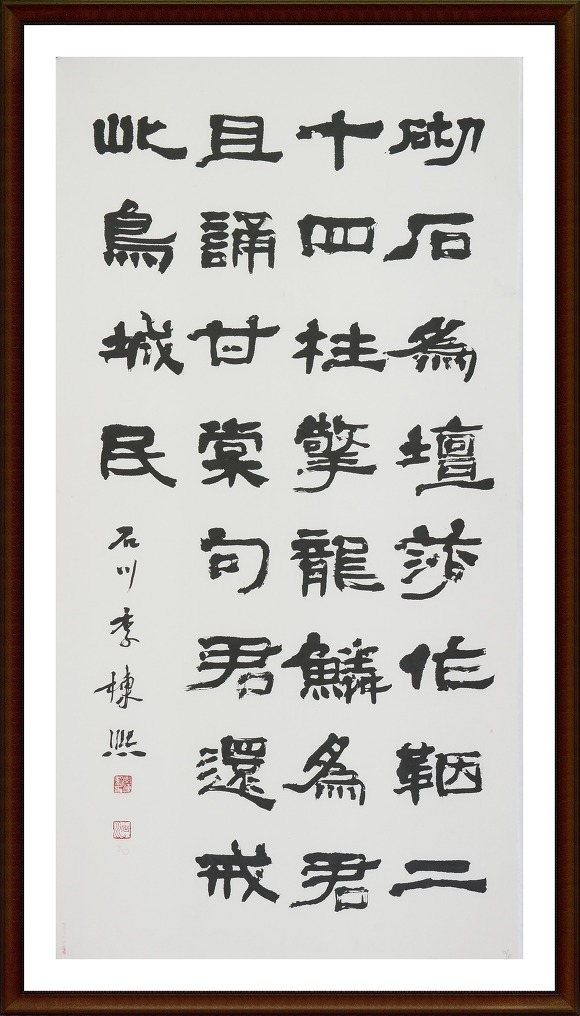 砌石為壇莎作鞇二
十四柱擎龍鱗為君
且誦甘棠句君還戒
此烏城民
石川李棟熙